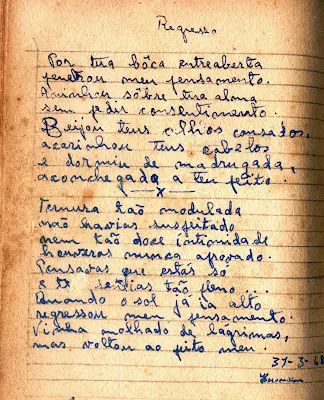 Regresso
Por tua bôca entreaberta
penetrou meu pensamento.
Aninhou sôbre tua alma
sem pedir consentimento.
Beijou teus olhos cansados,
acarinhou teus cabelos
e dormiu de madrugada,
aconchegada a teu peito.
x
Ternura tão modulada
não havias suspeitado
nem tão doce intimidade
houveras nunca provado.
Pensavas que estás só
e te sentias tão pleno...
Quando o sol já ia alto
regressou meu pensamento.
Vinha molhado de lágrimas,
mas voltou ao peito meu.
31-3-48